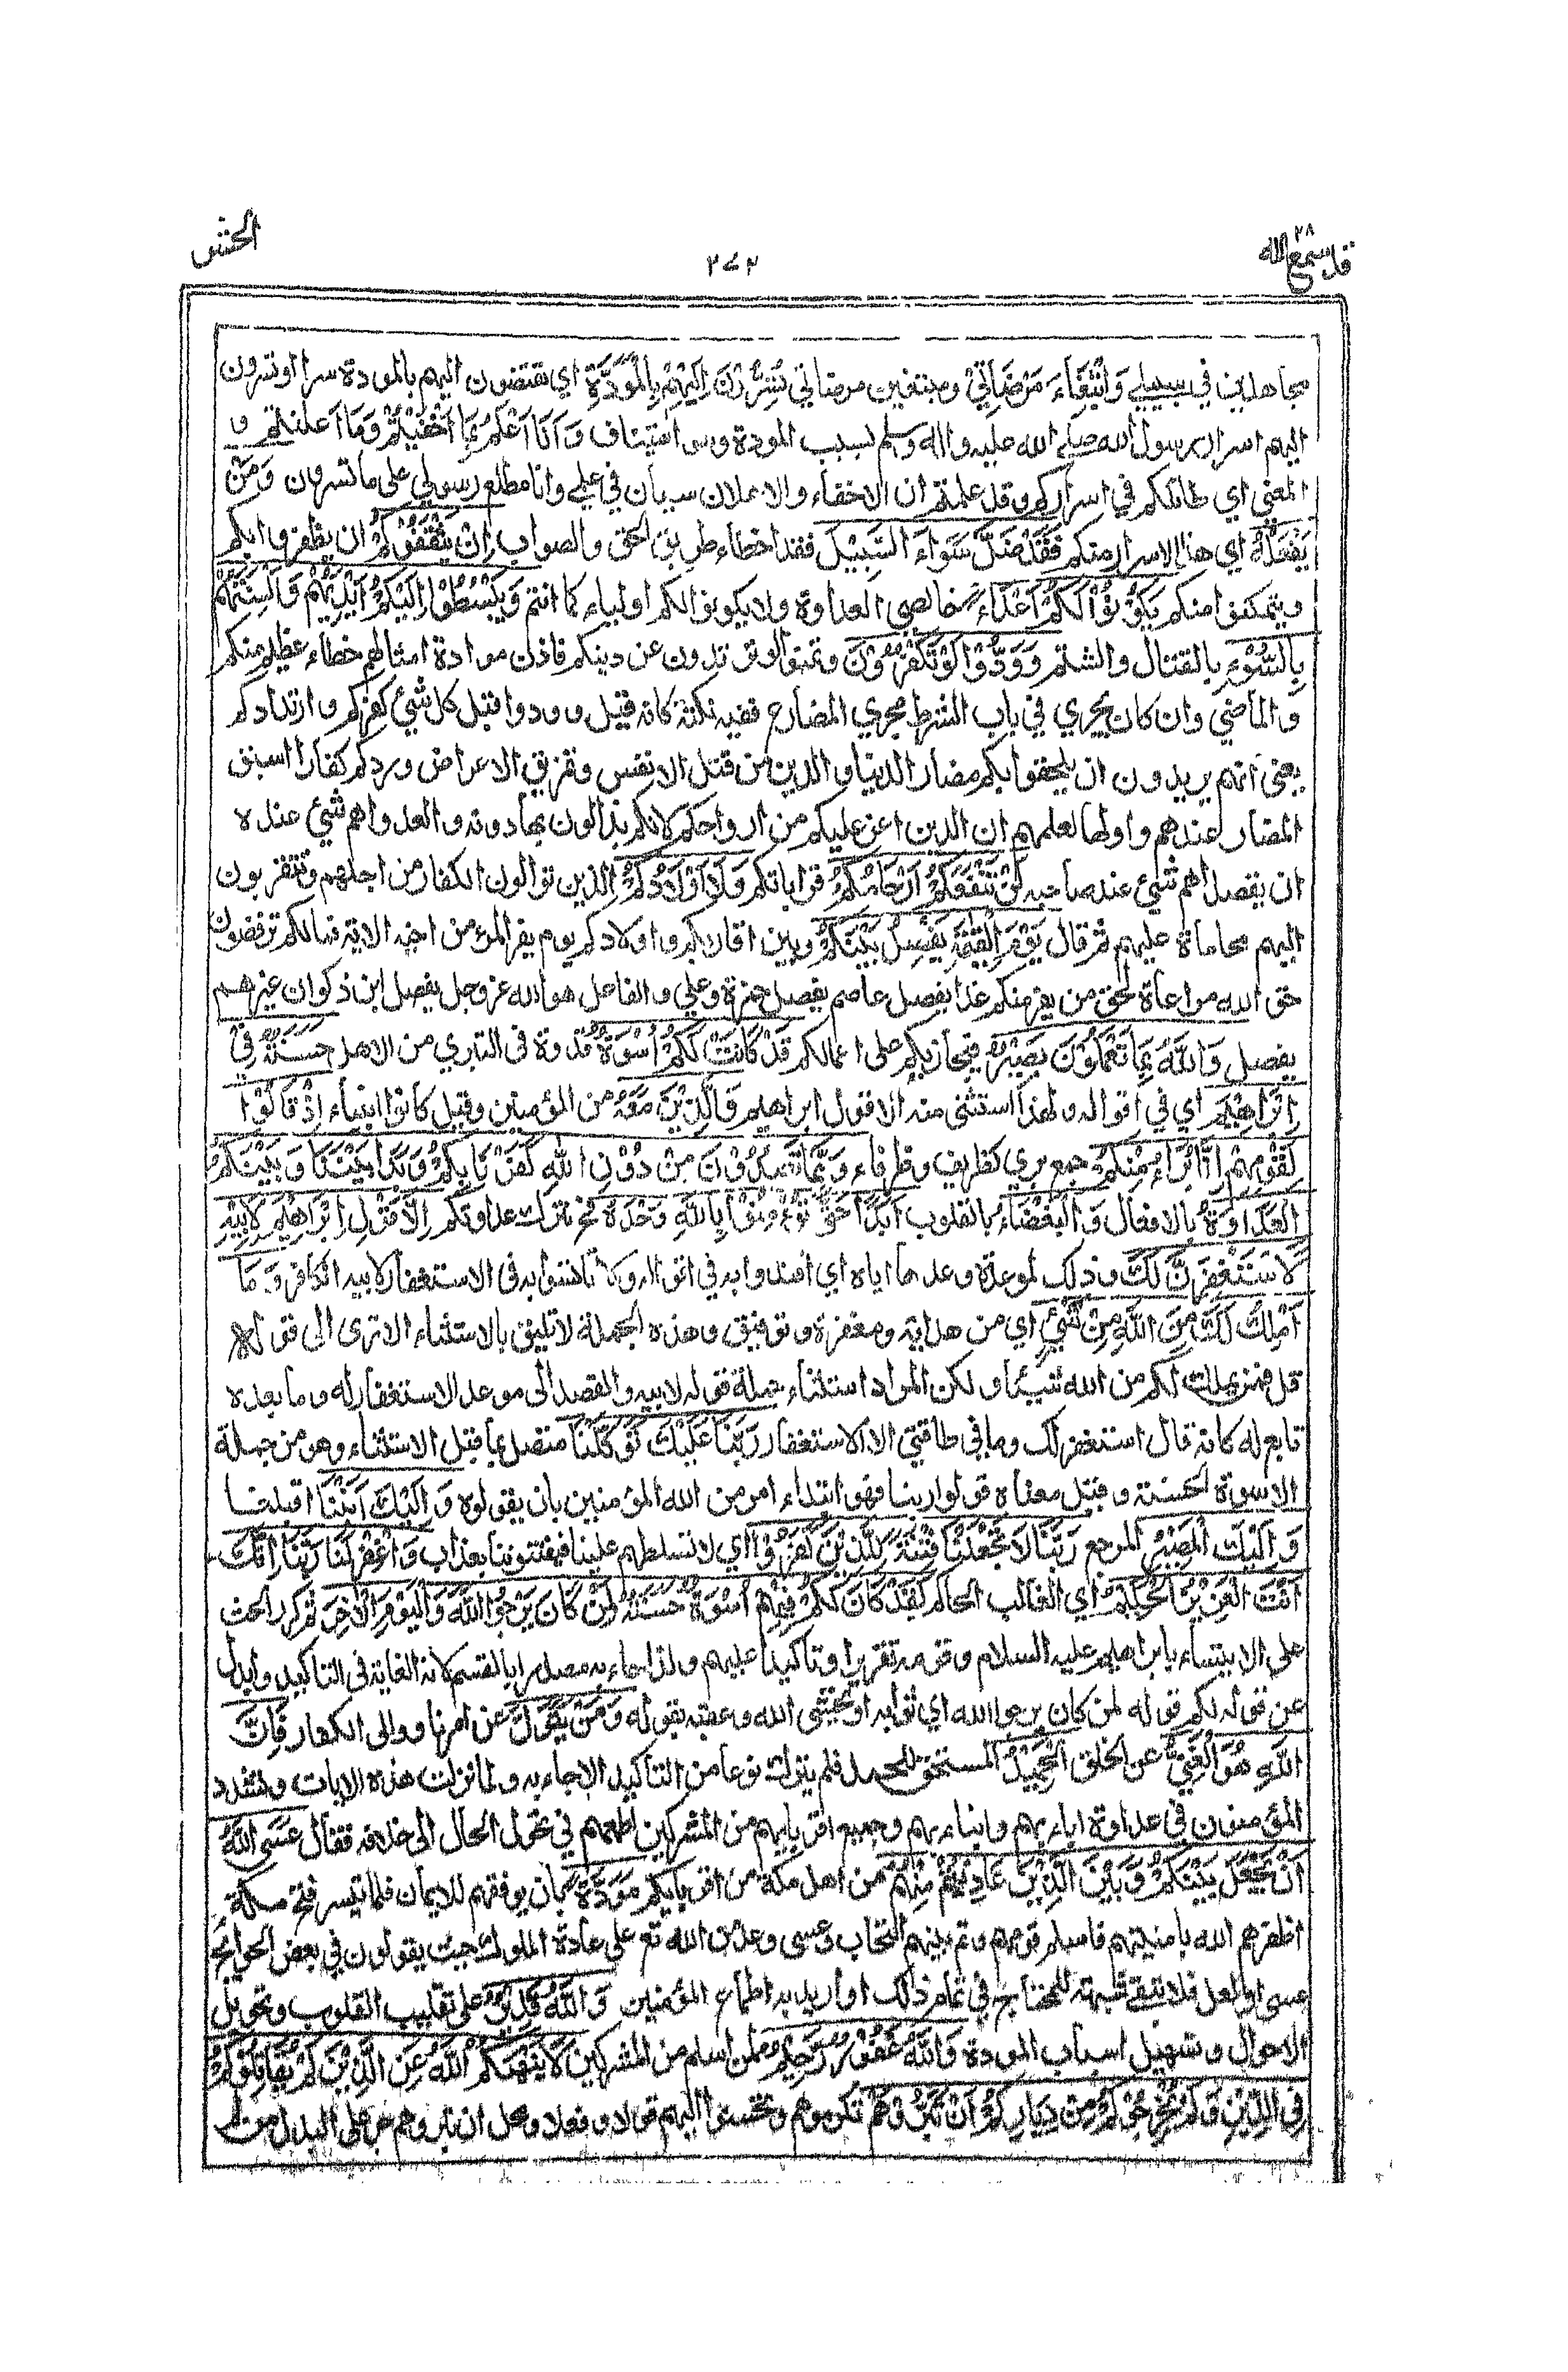 قد سمع الله ٢٨
٢٧٢
الحشر
مجاهدين في سبيلي وَابْتِغَاءَ مَرْضَاتِيْ ومبتغين مرضاتي تُسِرُّوْنَ اِلَيْهِمْ بِالْمَوَدَّةِ اي تفضون اليهم بالمودة سرا او تسرون
اليهم اسرار رسول الله صلى الله عليه واله وسلم بسبب المودة وهو استيناف وَاَنَا اَعْلَمُ بِمَا اَخْفَيْتُمْ وَمَا اَعْلَنْتُمْ و
المعنى اي طائل لكم في اسراركم وقد علمتم ان الاخفاء والاعلان سيان في علمي وانا مطلع رسولي على ما تسرون وَمَنْ
يَفْعَلْهُ اي هذا الاسرار منكم فَقَدْ ضَلَّ سَوَاءَ السَّبِيْلِ فقد اخطاء طريق الحق والصواب اِنْ يَثْقَفُوْكُمْ ان يظفروا بكم
ويتمكنوا منكم يَكُوْنُوْا لَكُمْ اَعْدَاءً خالصي العداوة ولا يكونوا لكم اولياء كما انتم وَيَبْسُطُوْا اِلَيْكُمْ اَيْدِيَهُمْ وَاَلْسِنَتَهُمْ
بِالسُّوْءِ بالقتال والشتم وَوَدُّوْا لَوْ تَكْفُرُوْنَ وتمنوا لو ترتدون عن دينكم فاذن موادة امثالهم خطاء عظيم منكم
والماضي وان كان يجري في باب الشرط مجرى المضارع ففيه نكتة كانه قيل وودوا قبل كل شيئ كفركم وارتدادكم
يعني انهم يريدون ان يلحقوا بكم مضار الدنيا والدين من قتل الانفس وتمزيق الاعراض وردكم كفارا اسبق
المضار عندهم واولها لعلمهم ان الدين اعز عليكم من ارواحكم لانكم بذالون لها دونه والعدو اهم شيئ عنده
ان يقصد اهم شيئ عند صاحبه لَنْ تَنْفَعَكُمْ اَرْحَامُكُمْ قراباتكم وَلَا اَوْلَادُكُمْ الذين توالون الكفار من اجلهم وتتقربون
اليهم محاماة عليهم ثم قال يَوْمَ الْقِيٰمَةِ يَفْصِلُ بَيْنَكُمْ وبين اقاربكم واولادكم يوم يفر المرء من اخيه الاية فمالكم ترفضون
حق الله مراعاة لحق من يفر منكم غدا يفصل عاصم يفصل حمزة وعلي والفاعل هو الله عز وجل يفصل ابن ذكوان غيرهم
يفصل وَاللّٰهُ بِمَا تَعْمَلُوْنَ بَصِيْرٌ فيجازيكم على اعمالكم قَدْ كَانَتْ لَكُمْ اُسْوَةٌ قدوة في التبري من الاهل حَسَنَةٌ فِيْ
اِبْرَاهِيْمَ اي في اقواله ولهذا استثنى منه الا قول ابراهيم وَالَّذِيْنَ مَعَهُ من المؤمنين وقيل كانوا انبياء اِذْ قَالُوْا
لِقَوْمِهِمْ اِنَّا بُرَاٰءُ مِنْكُمْ جمع بري كظريف وظرفاء وَمِمَّا تَعْبُدُوْنَ مِنْ دُوْنِ اللّٰهِ كَفَرْنَا بِكُمْ وَبَدَا بَيْنَنَا وَبَيْنَكُمُ
الْعَدَاوَةُ بالافعال وَالْبَغْضَاءُ بالقلوب اَبَدًا حَتّٰى تُؤْمِنُوْا بِاللّٰهِ وَحْدَهُ فحينئذ نترك عداوتكم اِلَّا قَوْلَ اِبْرَاهِيْمَ لِاَبِيْهِ
لَاَسْتَغْفِرَنَّ لَكَ وذلك لموعدة وعدها اياه اي اقتدوا به في اقواله ولا تاتسوا به في الاستغفار لابيه الكافر وَمَا
اَمْلِكُ لَكَ مِنَ اللّٰهِ مِنْ شَيْئٍ اي من هداية ومغفرة وتوفيق وهذه الجملة لا تليق بالاستثناء الا ترى الى قوله
قل فمن يملك لكم من الله شيئا ولكن المراد استثناء جملة قوله لابيه والقصد الى موعد الاستغفار له وما بعده
تابع له كانه قال استغفر لك وما في طاقتي الا الاستغفار رَبَّنَا عَلَيْكَ تَوَكَّلْنَا متصل بما قبل الاستثناء وهو من جملة
الاسوة الحسنة وقيل معناه قولوا ربنا فهو ابتداء امر من الله المؤمنين بان يقولوه وَاِلَيْكَ اَنَبْنَا اقبلنا
وَاِلَيْكَ الْمَصِيْرُ المرجع رَبَّنَا لَا تَجْعَلْنَا فِتْنَةً لِلَّذِيْنَ كَفَرُوْا اي لا تسلطهم علينا فيفتنوننا بعذاب وَاغْفِرْ لَنَا رَبَّنَا اِنَّكَ
اَنْتَ الْعَزِيْزُ الْحَكِيْمُ اي الغالب الحاكم لَقَدْ كَانَ لَكُمْ فِيْهِمْ اُسْوَةٌ حَسَنَةٌ لِمَنْ كَانَ يَرْجُوا اللّٰهَ وَالْيَوْمَ الْاٰخِرَ ثم كرر الحث
على الايتساء بابراهيم عليه السلام وقومه تقريرا وتاكيدا عليهم ولذا جاء به مصدرا بالقسم لانه الغاية في التاكيد وابدل
عن قوله لكم قوله لمن كان يرجوا الله اي ثوابه او يخشى الله وعقبه بقوله وَمَنْ يَتَوَلَّ عن امرنا ووالى الكفار فَاِنَّ
اللّٰهَ هُوَ الْغَنِيُّ عن الخلق الْحَمِيْدُ المستحق للحمد فلم يترك نوعا من التاكيد الا جاء به ولما نزلت هذه الايات وتشدد
المؤمنون في عداوة ابايهم وابنايهم وجميع اقربايهم من المشركين اطمعهم في تحول الحال الى خلافه فقال عَسَى اللّٰهُ
اَنْ يَجْعَلَ بَيْنَكُمْ وَبَيْنَ الَّذِيْنَ عَادَيْتُمْ مِنْهُمْ من اهل مكة من اقربايكم مَوَدَّةً بان يوفقهم للايمان فلما تيسر فتح مكة
اظفرهم الله بامنيتهم فاسلم قومهم وتم بينهم التحاب وعسى وعد من الله تع على عادة الملوك حيث يقولون في بعض الحوايج
عسى او لعل فلا يبقى شبهة للمحتاج في تمام ذالك او اريد به اطماع المؤمنين وَاللّٰهُ قَدِيْرٌ على تقليب القلوب وتحويل
الاحوال وتسهيل اسباب المودة وَاللّٰهُ غَفُوْرٌ رَّحِيْمٌ لمن اسلم من المشركين لَا يَنْهٰىكُمُ اللّٰهُ عَنِ الَّذِيْنَ لَمْ يُقَاتِلُوْكُمْ
فِي الدِّيْنِ وَلَمْ يُخْرِجُوْكُمْ مِنْ دِيَارِكُمْ اَنْ تَبَرُّوْهُمْ تكرموهم وتحسنوا اليهم قولا وفعلا ومحل ان تبروهم جر على البدل من